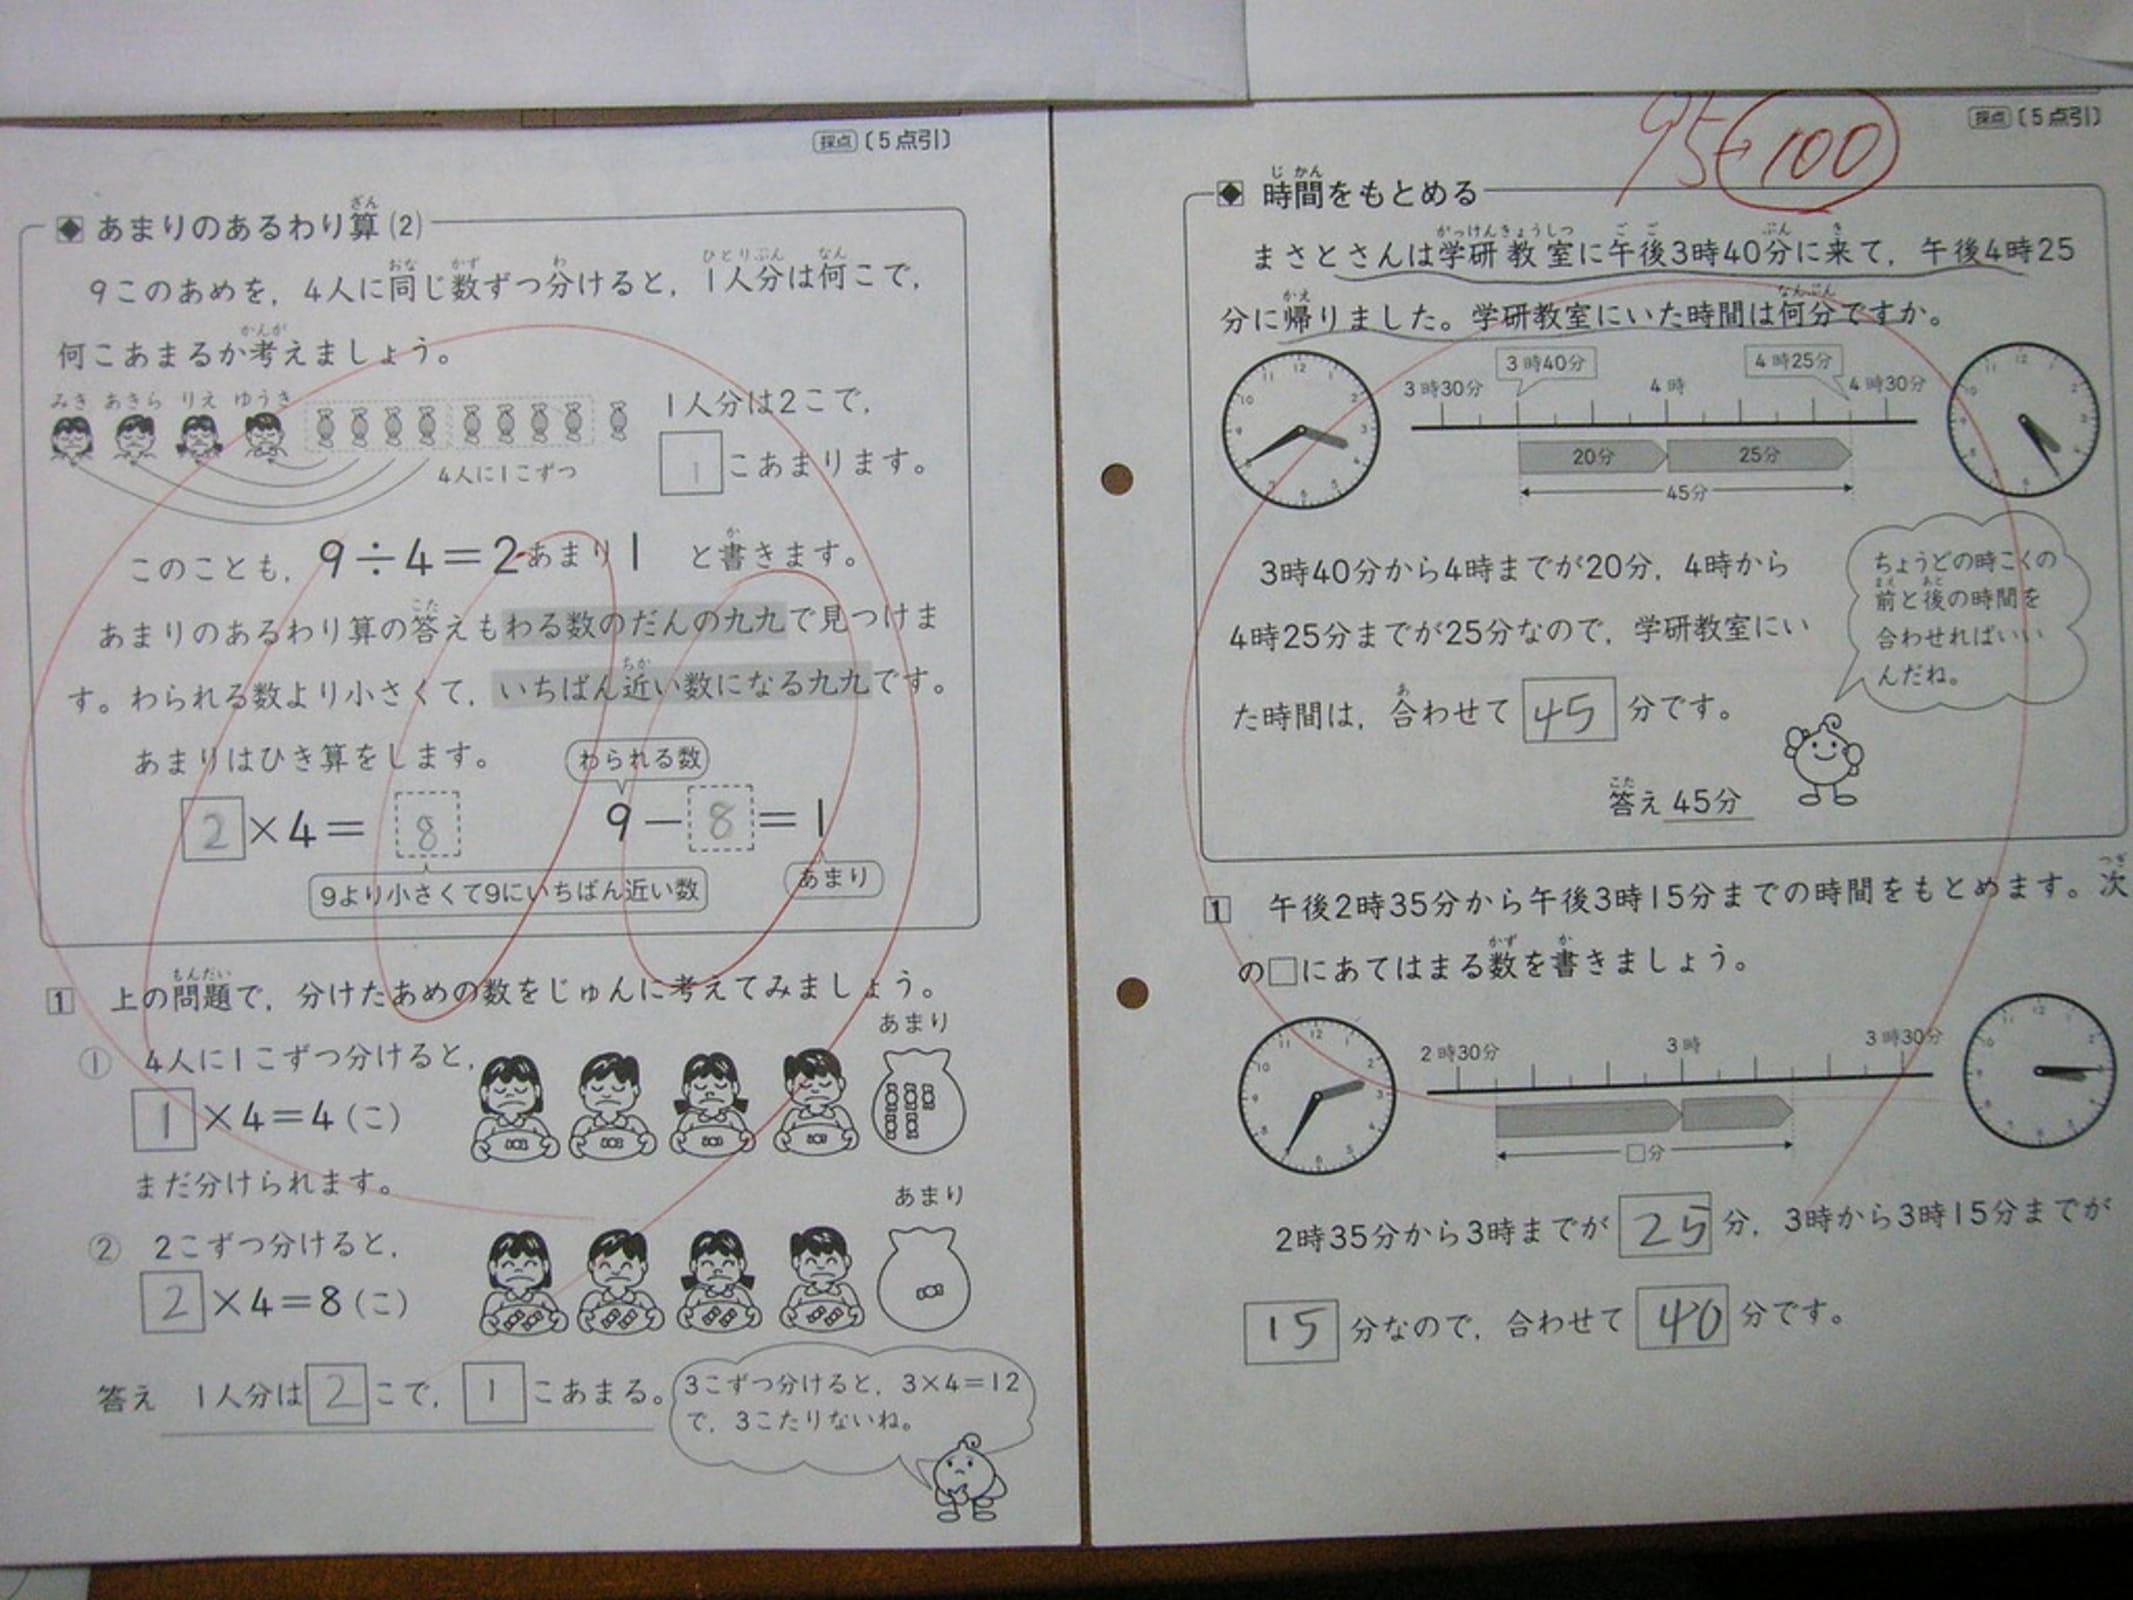 採点 〔5点引〕
あまりのあるわり算(2)
9このあめを，4人に同じ数ずつ分けると，1人分は何こで，
何こあまるか考えましょう。
みき あきら りえ ゆうき
4人に1こずつ
1人分は2こで，
1こあまります。
このことも，9÷4＝2あまり1 と書きます。
あまりのあるわり算の答えもわる数のだんの九九で見つけま
す。わられる数より小さくて，いちばん近い数になる九九です。
あまりはひき算をします。
わられる数
2×4＝8 9－8＝1
9より小さくて9にいちばん近い数
あまり
1 上の問題で，分けたあめの数をじゅんに考えてみましょう。
① 4人に1こずつ分けると，
あまり
1×4＝4(こ)
まだ分けられます。
② 2こずつ分けると，
あまり
2×4＝8(こ)
答え 1人分は2こで，1こあまる。
3こずつ分けると，3×4＝12
で，3こたりないね。
95 100
採点 〔5点引〕
時間をもとめる
まさとさんは学研教室に午後3時40分に来て，午後4時25
分に帰りました。学研教室にいた時間は何分ですか。
3時30分 3時40分 4時 4時25分 4時30分
20分 25分
45分
3時40分から4時までが20分，4時から
4時25分までが25分なので，学研教室にい
た時間は，合わせて45分です。
ちょうどの時こくの
前と後の時間を
合わせればいい
んだね。
答え 45分
1 午後2時35分から午後3時15分までの時間をもとめます。次
の□にあてはまる数を書きましょう。
2時30分 3時 3時30分
□分
2時35分から3時までが25分，3時から3時15分までが
15分なので，合わせて40分です。